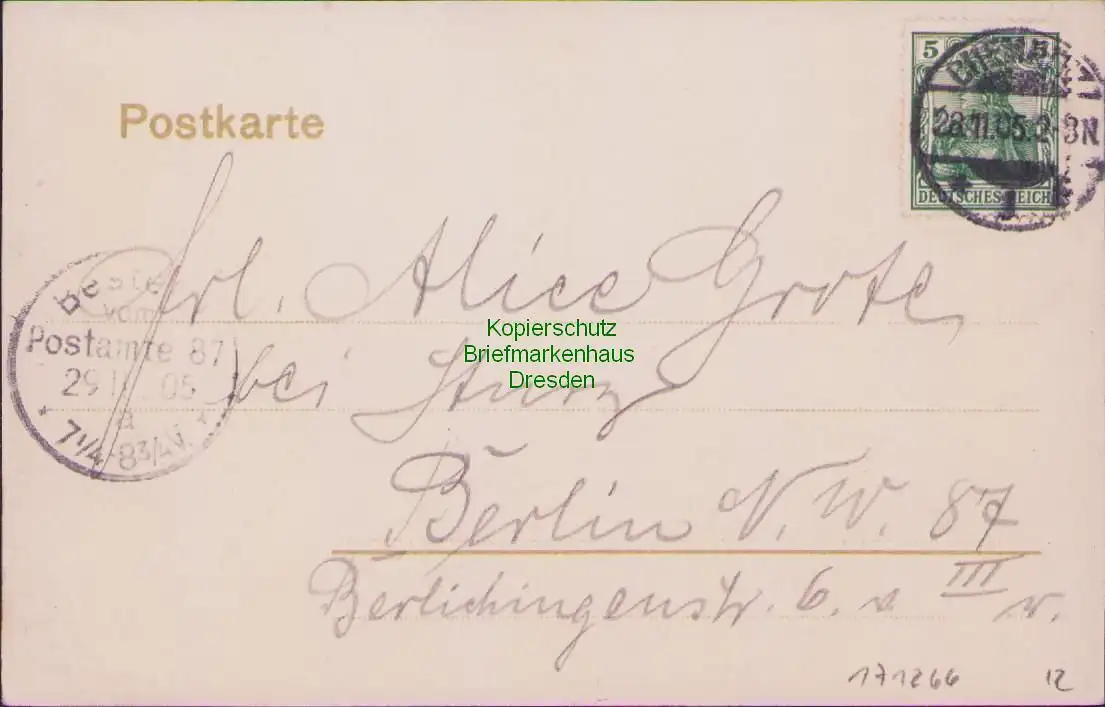 Postkarte
5 5
28.11.05. 2-3N
DEUTSCHES REICH
Frl. Alice Grote
Beste
vom
Postamte 87
29 11 05
a
* 7 1/4-8 3/4 V. *
bei Sturz
Kopierschutz
Briefmarkenhaus
Dresden
Berlin N. W. 87
Berlichingenstr. 6. v III r.
171266 12